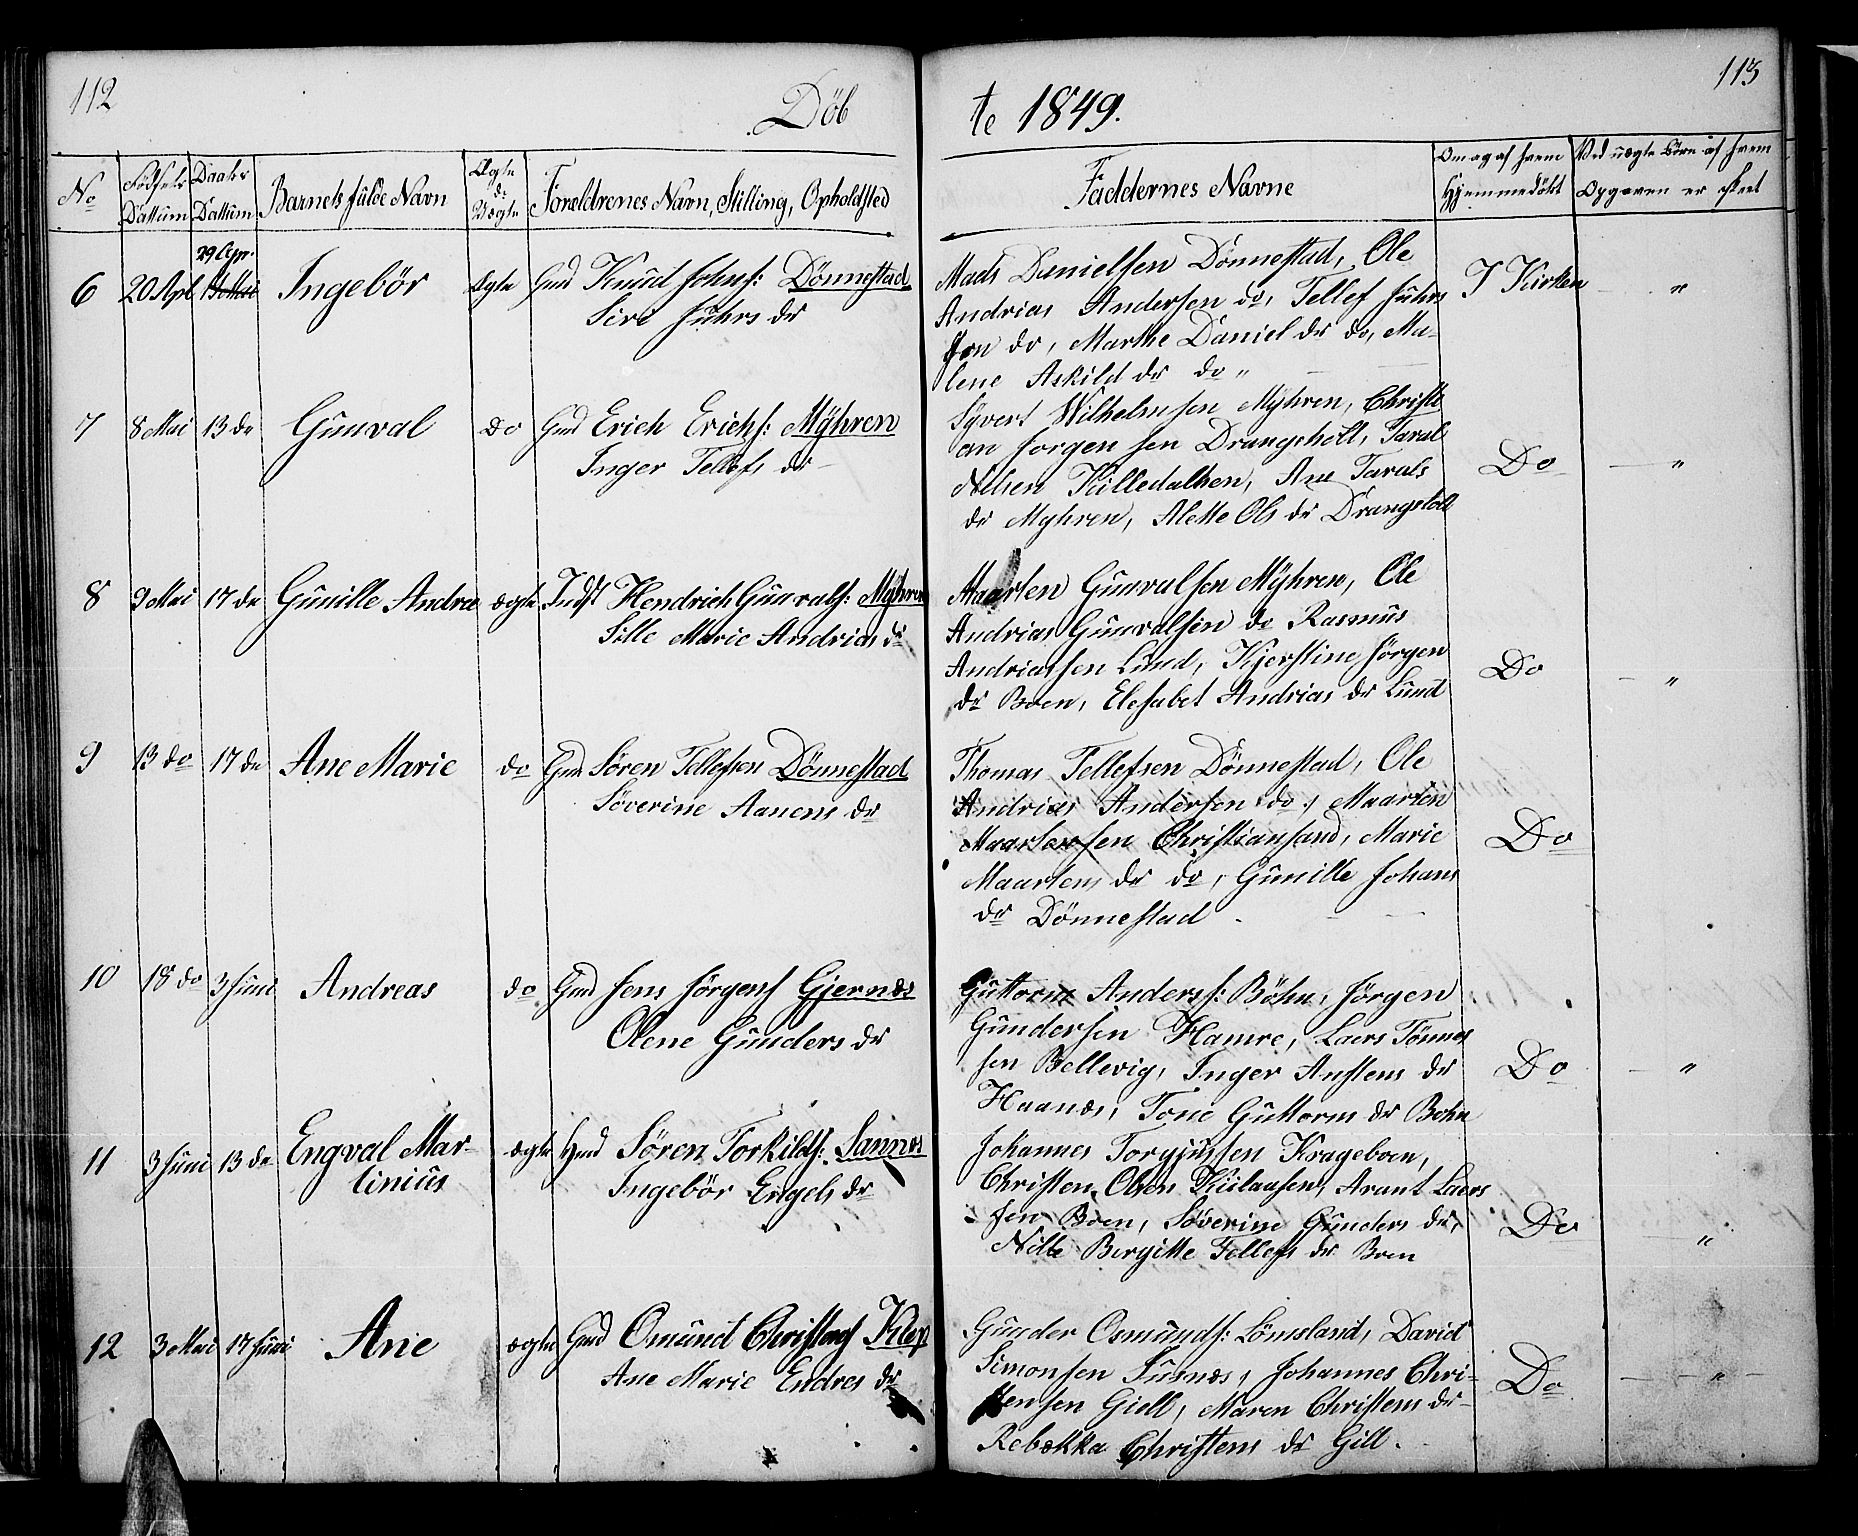 112
Döb
te 1849.
113
No
Födsels Dattum
Daabs Dattum
Barnets fulde Navn
Ægte el. Uægte
Forældrenes Navn, Stilling, Opholdsted
Faddernes Navne
Om og af hvem Hjemmedöbt
Ved uægte Börn af hvem Opgaven er skeet
29 Apr.
6 20 Apl 13 Mai Ingebör Ægte Gmd Knud Johns: Dönnestad
Siri Juhrs dr
Mads Danielsen Dönnestad, Ole
Andrias Andersen do, Tellef Juhrs
sen do, Marthe Daniel dr do, Ma-
lene Askild dr do "
I Kirken "
7 8 Mai 13 de Gunval do Gmd Erich Erichs: Mÿhren
Inger Tellefs dr
Syvert Wilhelmsen Mÿhren, Christi
an Jorgensen Drangsholt, Taral
Nilsen Kulledalhen, Ane Tarals
dr Myhren, Alette Ols dr Drangsholt
Do "
8 9 Mai 17 de Gunille Andrea ægte Indst Hendrich Gunvals: Mÿhren
Sille Marie Andrias dr
Maarten Gunvalsen Mÿhren, Ole
Andrias Gunvalsen do Rasmus
Andriassen Lund, Kjerstine Jörgen
dr Boen, Elesabet Andrias dr Lund
Do "
9 13 do 17 de Ane Marie do Gmd Sören Tellefsen Dönnestad
Söverine Aanens dr
Thomas Tellefsen Dönnestad, Ole
Andrias Andersen do, Maarten
Maartensen Christiansand, Marie
Maartens dr do, Gunille Johans
dr Dönnestad
Do
10 18 do 3 Juni Andreas do Gmd Jens Jörgens Gjernæs
Olene Gunders dr
Guttorm Anderss: Böhn, Jörgen
Gundersen Hamre, Laers Tönnes
sen Bellevig, Inger Anstens dr
Haanæs, Tone Guttorms dr Bohn
Do "
11 3 Juni 13 de Engval Mar-
tinius
ægte Hmd Sören Torkilds: Sannæs
Ingebör Engels dr
Johannes Torgjussen Krageboen,
Christen Olsen Kulaasen, Arant Laers
sen Boen, Söverine Gunders dr,
Nille Bergitte Tellefs dr Boen
Do "
12 3 Mai 17 Juni Ane ægte Gmd Omund Christens Klep
Ane Marie Endres dr
Gunder Osmunds: Lömsland, David
Simonsen Tusnæs, Johannes Chri-
stensen Giell, Maren Christens dr
Rebækka Christens dr Gill.
Do "